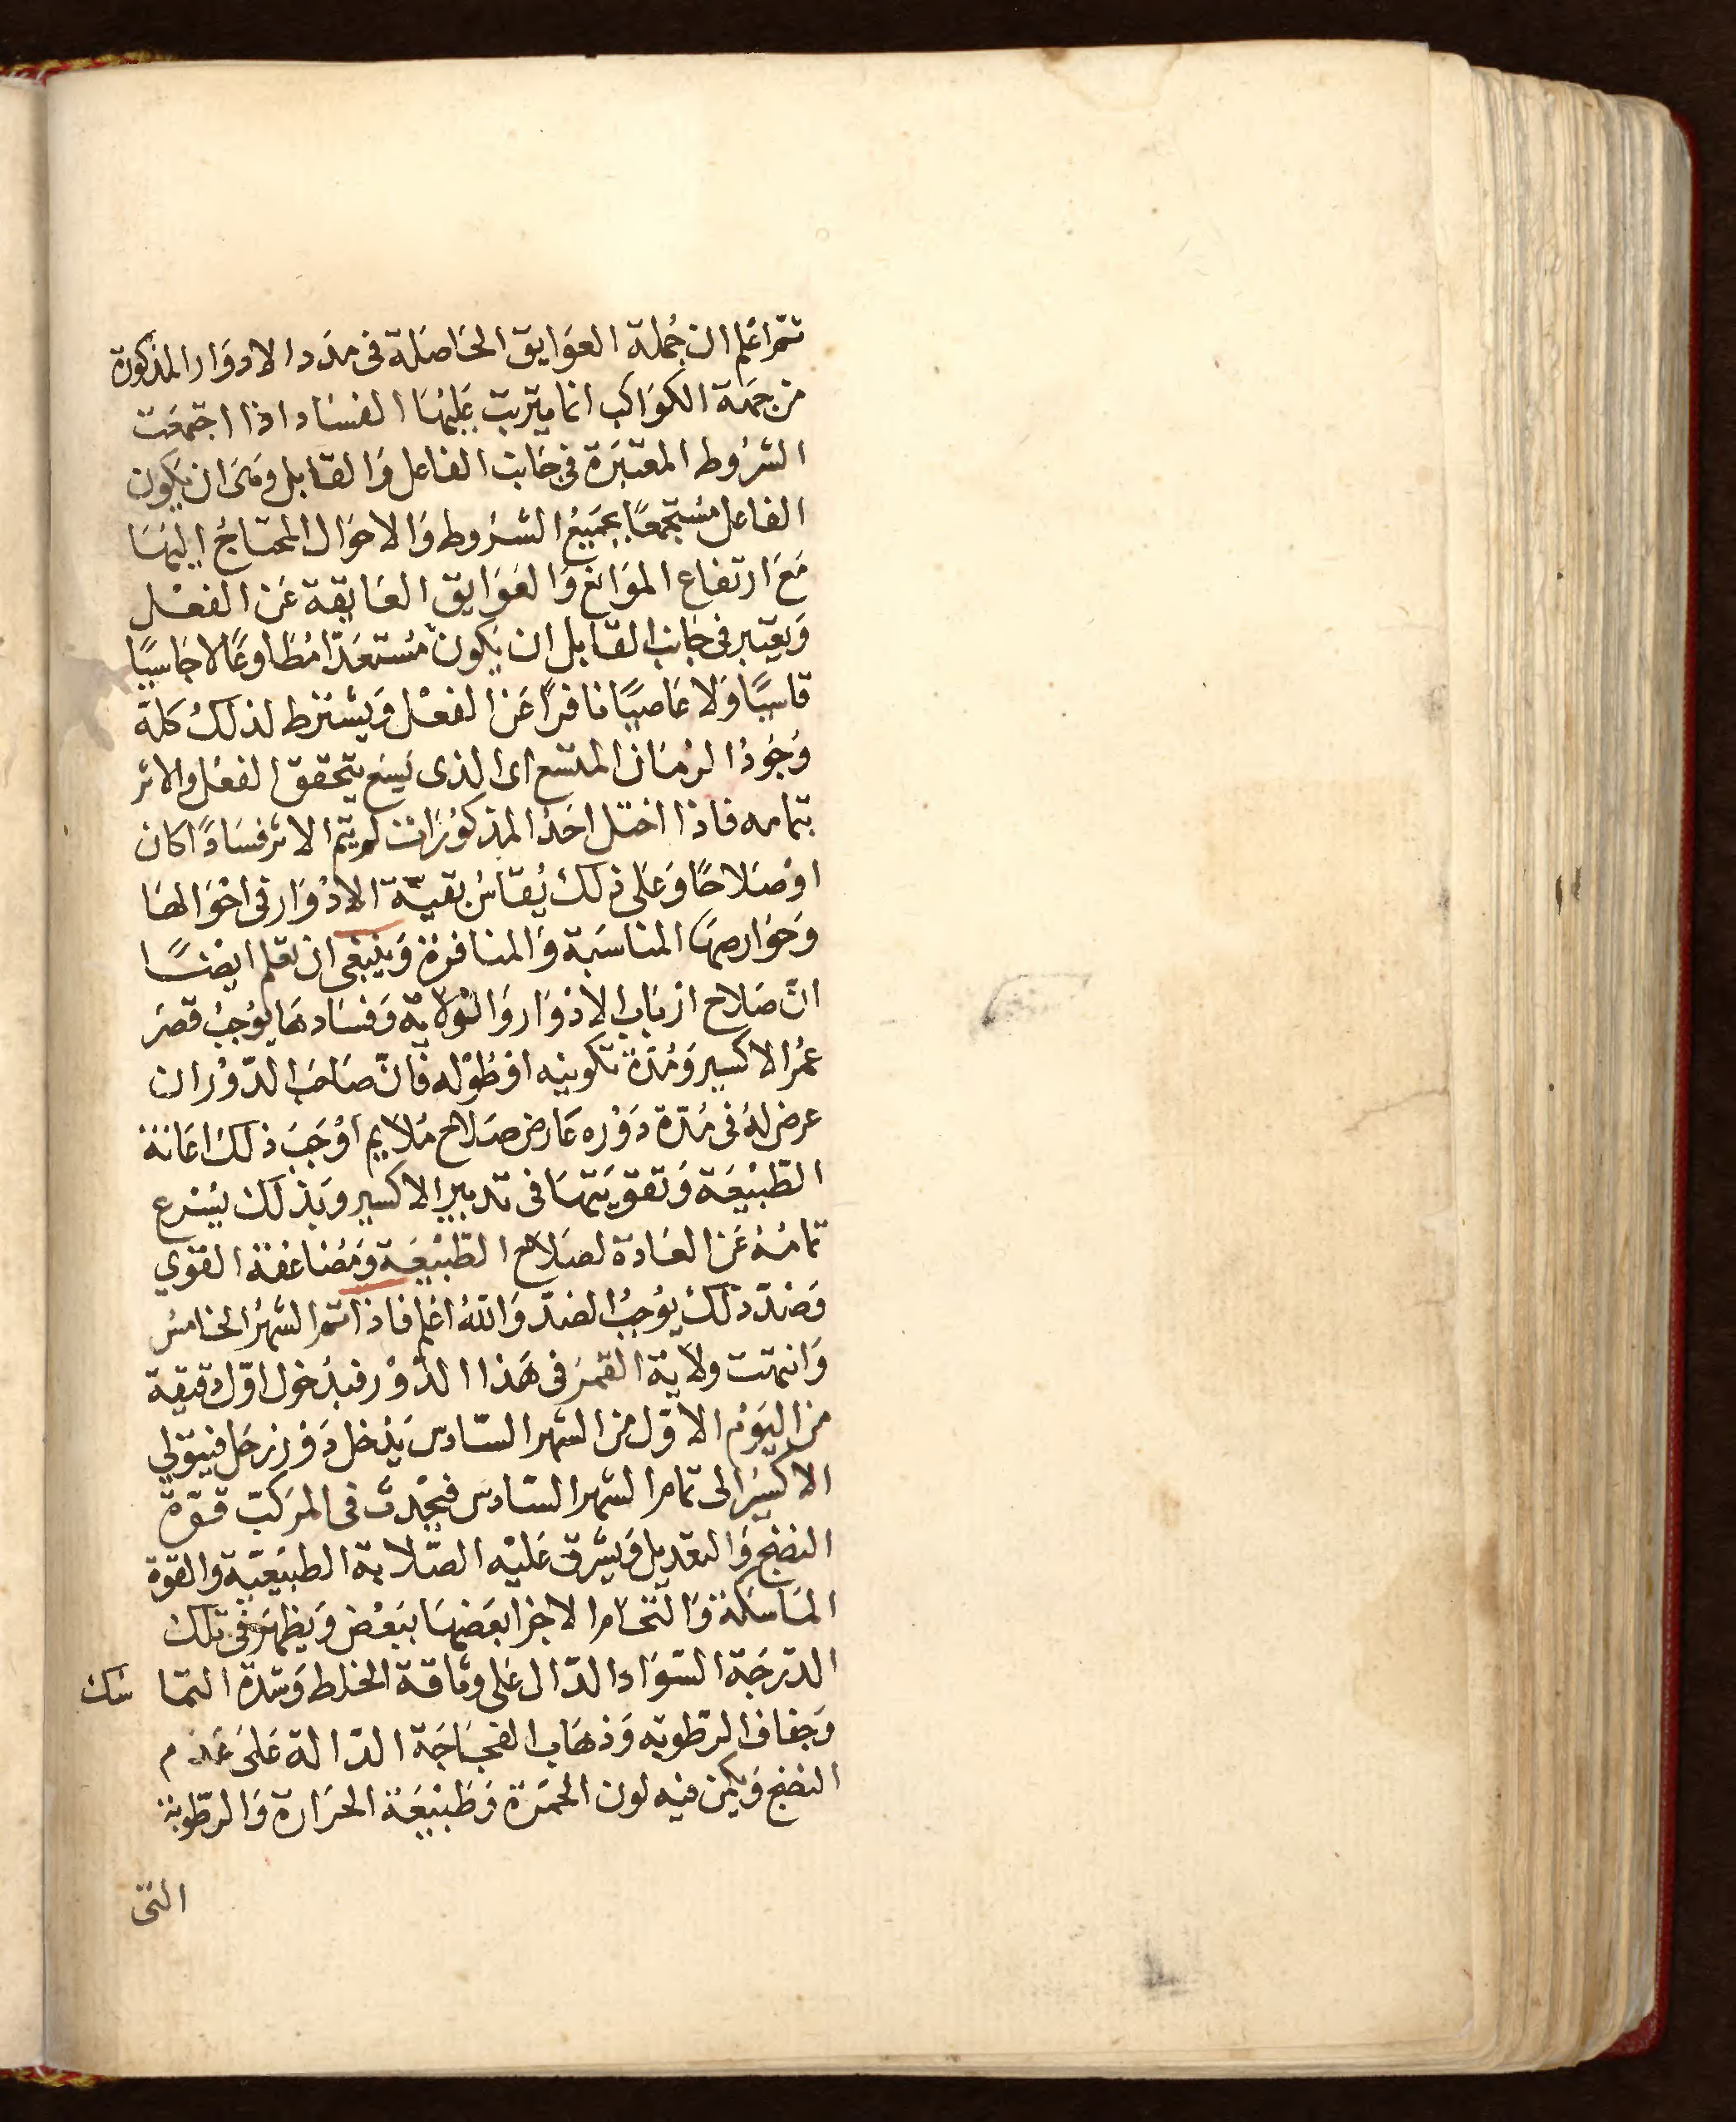 ثم اعلم ان جُملة العَوايق الحَاصَلة فى مدد الادوَار المذكورة
من جهة الكوَاكب انما يترتب عَليهَا الفسَاد اذا اجتمعَت
الشرُوط المعتبَرة فى جَانب الفاعل وَالقابل وهى ان يكون
الفاعل مسُتجمعًا بجميعُ الشرُوط وَالاحوَال المحتَاجُ اليهَا
مَعَ ارتفاع الموَانع وَالعَوَايق العَايقة عَن الفعْل
وَيعتبر فى جَانب القابل ان يكون مُستعَدّا مُطاوعًا لا جَاسيًا
قاسيًا وَلا عَاصيًا نافرًا عَن الفعْل وَيشترط لذلكُ كلة
وَجُودُ الزمَان المتسع اى الذى يسَع يتحقق الفعْل والاثر
بتمامه فاذا اختل احَدُ المذكورَات لم يتم الاثر فسَادًا كان
اوْ صَلاحًا وَعَلى ذلكَ يُقاسُ بقيّة الادْوَار فى احْوَالهَا
وَعَوَارضهَا المناسَبة وَالمنافرَة وَينبَغى ان تعلم ايضًا
انّ صَلاح ارْبَاب الادْوَار وَالوْلاية وَفسَادهَا يوُجبُ قصَر
عمُر الاكسير وَمُدّة تكوينه اوْ طُوْله فانّ صَاحَب الدّوْر ان
عرض لهُ فى مُدّة دَوْره عَارض صَلاح مُلايم اوْجَبَ ذلكَ اعَانة
الطبيْعَة وَتقويَتهَا فى تدبير الاكسير وَبذلكَ يسْرع
تمامُهُ عَن العَادة لصَلاح الطبيْعَة وَمُضاعَفة القوَي
وَضدّ ذلكَ يوُجبُ الضدّ وَاللهُ اعْلم فاذا تم الشهرُ الخامسُ
وَانتهت ولايَة القمَر فى هَذا الدّوْر فبدخول اوّل دقيقة
من اليَوْم الاوّل من الشهر السّادس يَدْخل دَوْر زحَل فيتولي
الاكسيْر الى تمام الشهر السّادس فيحْدث فى المرَكبّ قوّة
النضج وَالتعديل وَيشرق عَليْه الصّلابة الطبيعَيّة وَالقوة
المَاسَكة وَالتحَام الاجزا بعَضهَا ببَعْض وَيظهَر فى تلك
الدّرجَة السّوَاد الدّال عَلى وثاقة الخلط وَشدّة التما سك
وَجفاف الرّطوبه وَذهَاب الفجَاجَة الدّالة عَلىَ عَدم
النضج وَيكمن فيه لون الحمَرة وَطبيْعَة الحرَارة وَالرطوبة
التى